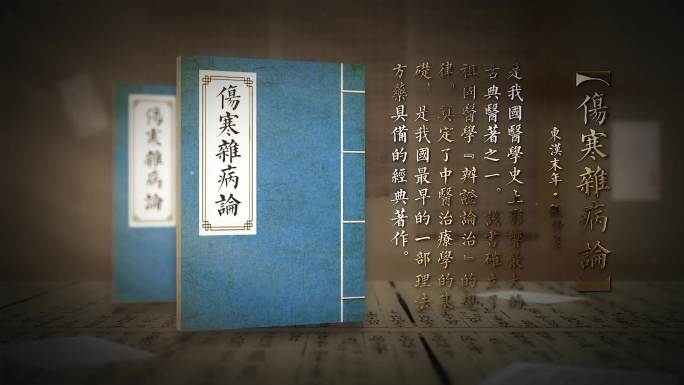 【傷寒雜病論】
東漢末年·
是我國醫學史上影響最大的
古典醫著之一。該書確立了
祖國醫學『辨證論治』的規
律。奠定了中醫治療學的基
礎，是我國最早的一部理法
方藥具備的經典著作。
傷寒雜病論
傷寒雜病論